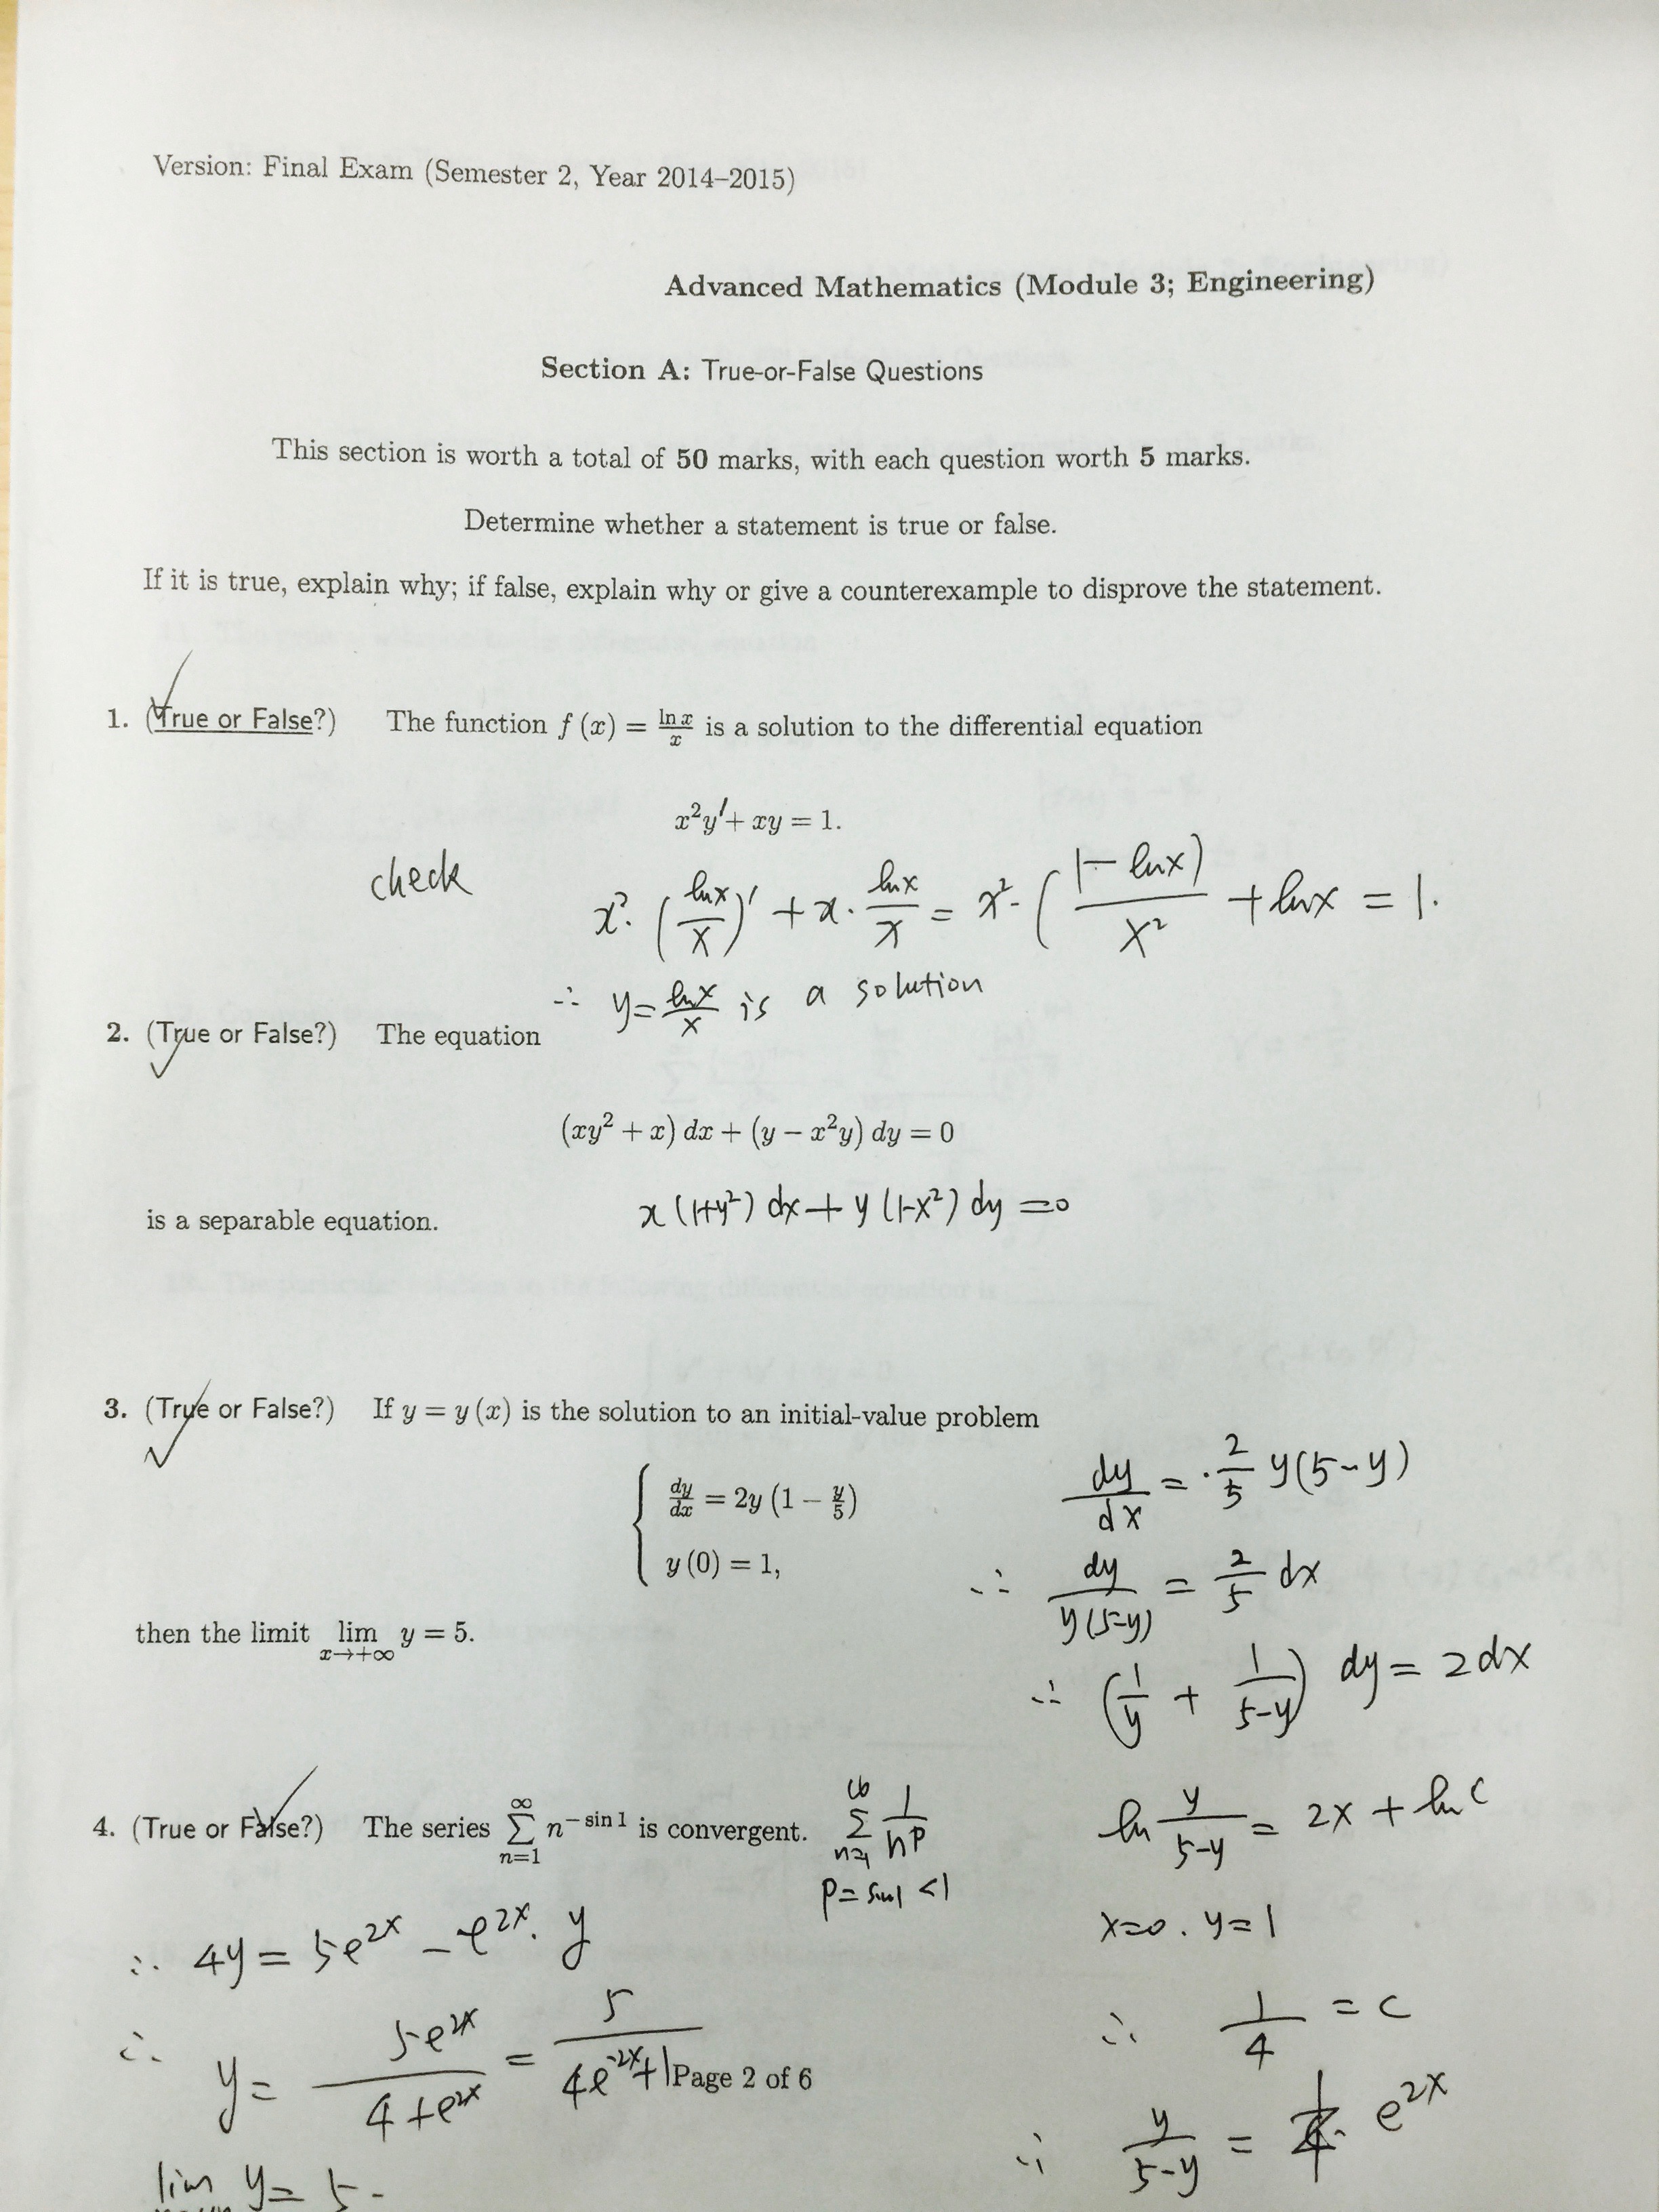 Version: Final Exam (Semester 2, Year 2014–2015)
Advanced Mathematics (Module 3; Engineering)
Section A: True-or-False Questions
This section is worth a total of 50 marks, with each question worth 5 marks.
Determine whether a statement is true or false.
If it is true, explain why; if false, explain why or give a counterexample to disprove the statement.
1. (True or False?) The function f (x) = ln x / x is a solution to the differential equation
x²y′ + xy = 1.
check x²· (lnx / x)′ + x · lnx / x = x² · (1 − lnx) / x² + lnx = 1.
∴ y = lnx / x is a solution
2. (True or False?) The equation
(xy² + x) dx + (y − x²y) dy = 0
is a separable equation. x (1+y²) dx + y (1−x²) dy = 0
3. (True or False?) If y = y (x) is the solution to an initial-value problem
dy/dx = 2y (1 − y/5)
y (0) = 1,
then the limit lim x→+∞ y = 5.
dy / dx = · 2/5 y(5−y)
∴ dy / y(5−y) = 2/5 dx
∴ (1/y + 1/(5−y)) dy = 2dx
ln y/(5−y) = 2x + ln C
x=0. y=1
∴ 1/4 = C
∴ y/(5−y) = 1/4 · e^2x
4. (True or False?) The series ∞ Σ n=1 n^− sin 1 is convergent. ∞ Σ n=1 1/n^p
p = sin1 < 1
∴ 4y = 5e^2x − e^2x · y
∴ y = 5e^2x / (4 + e^2x) = 5 / (4e^−2x + 1)
Page 2 of 6
lim y = 5 -